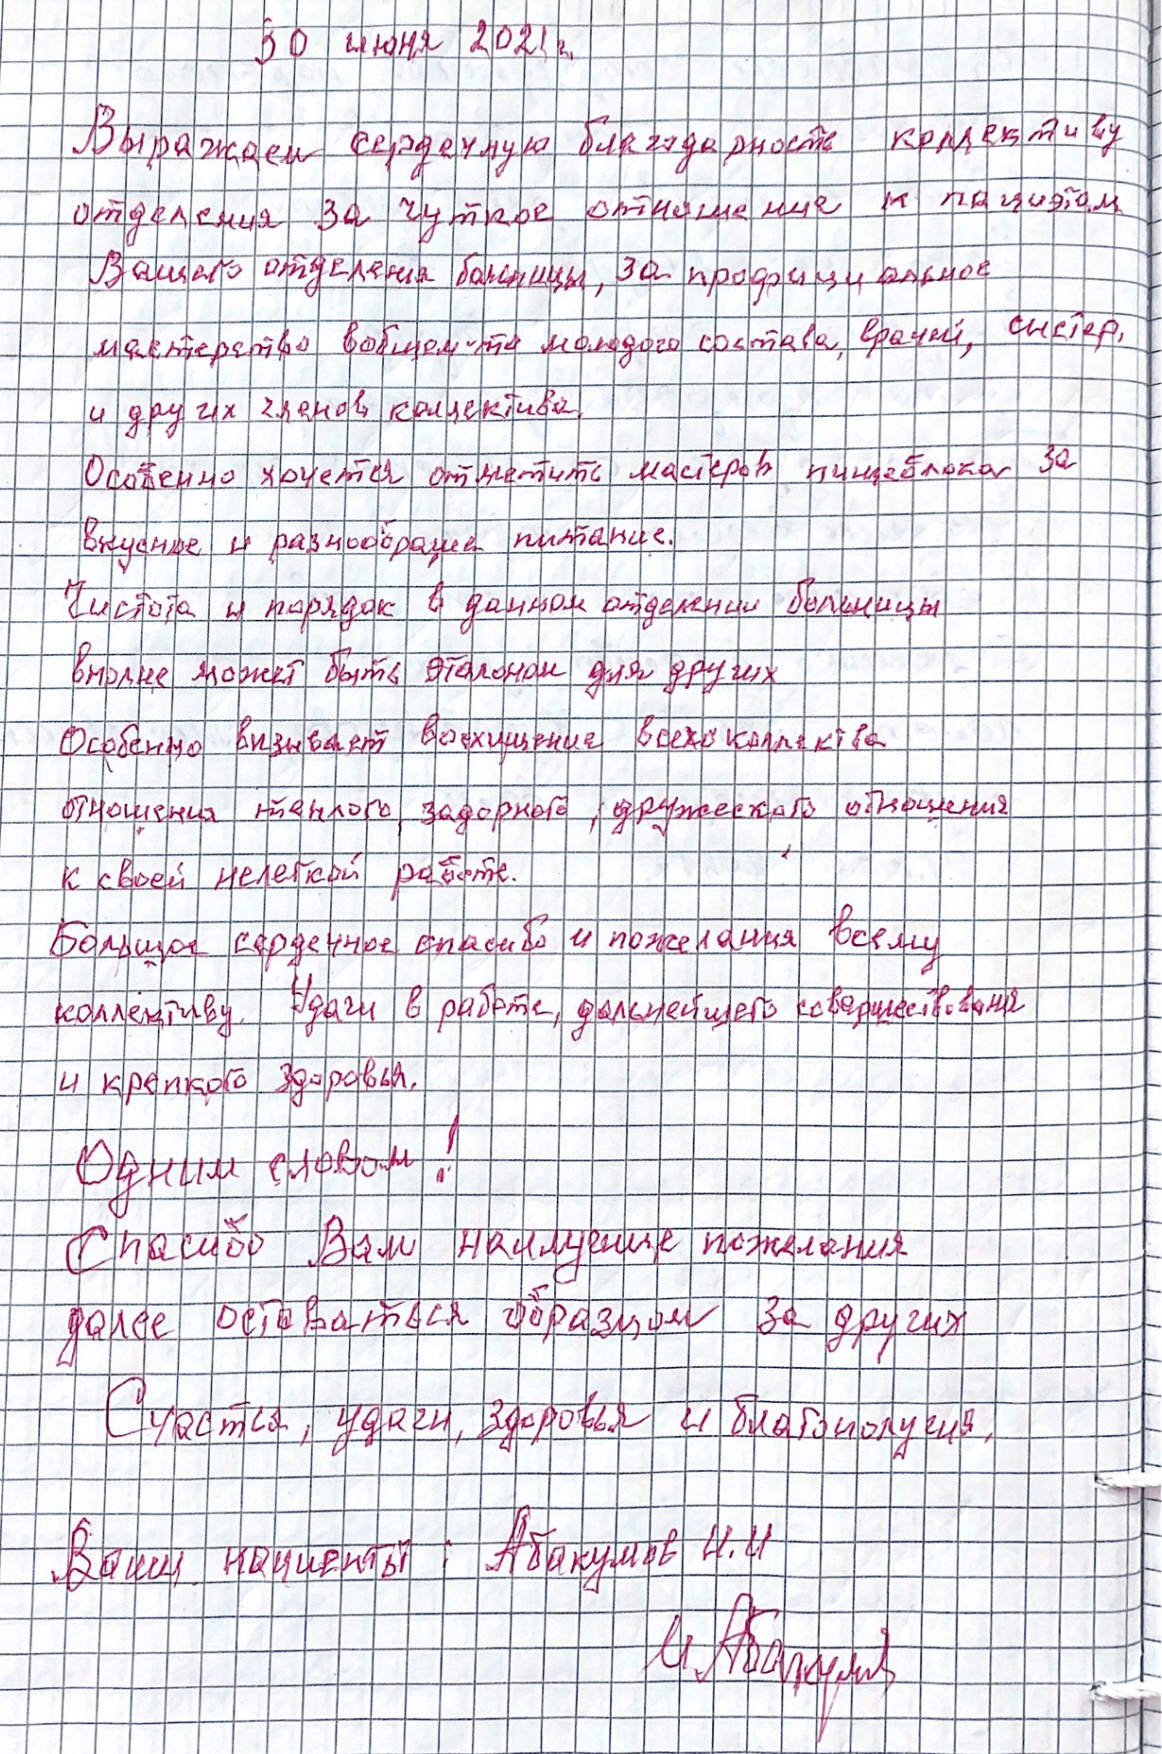 30 июня 2021г.
Выражаем сердечную благодарность коллективу
отделения за чуткое отношение к пациэтам
Вашего отделения больницы, за профициальное
мастерство вобщем-то молодого состава, врачей, сыстер,
и других членов коллектива.
Особенно хочется отметить мастеров пищеблока за
вкусное и разнообразие питание.
Чистота и порядок в данном отделении больницы
вполне может быть эталоном для других
Особенно вызывает восхищение всего коллектва
отношения теплого, задорного, дружеского отношения
к своей нелегкой работе.
Большое сердечное спасибо и пожелания всему
коллективу. Удачи в работе, дальнейшего совершествования
и крепкого здоровья.
Одним словом!
Спасибо Вам наилучшие пожелания
далее оставаться образцом за других
Счастья, удачи, здоровья и благополучия.
Ваши пациенты: Абакумов И.И
И.Абакумов